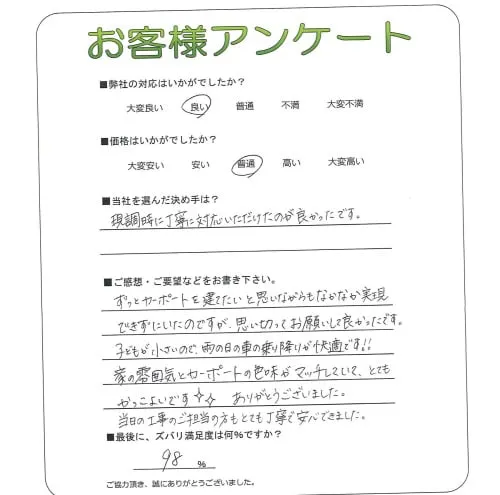 お客様アンケート
■弊社の対応はいかがでしたか？
大変良い 良い 普通 不満 大変不満
■価格はいかがでしたか？
大変安い 安い 普通 高い 大変高い
■当社を選んだ決め手は？
現調時に丁寧に対応いただけたのが良かったです。
■ご感想・ご要望などをお書き下さい。
ずっとカーポートを建てたいと思いながらもなかなか実現
できずにいたのですが、思い切ってお願いして良かったです。
子どもが小さいので、雨の日の車の乗り降りが快適です!!
家の雰囲気とカーポートの色味がマッチしていて、とても
かっこよいです✧✧ ありがとうございました。
当日の工事のご担当の方もとても丁寧で安心できました。
■最後に、ズバリ満足度は何%ですか？
98 %
ご協力頂き、誠にありがとうございました。